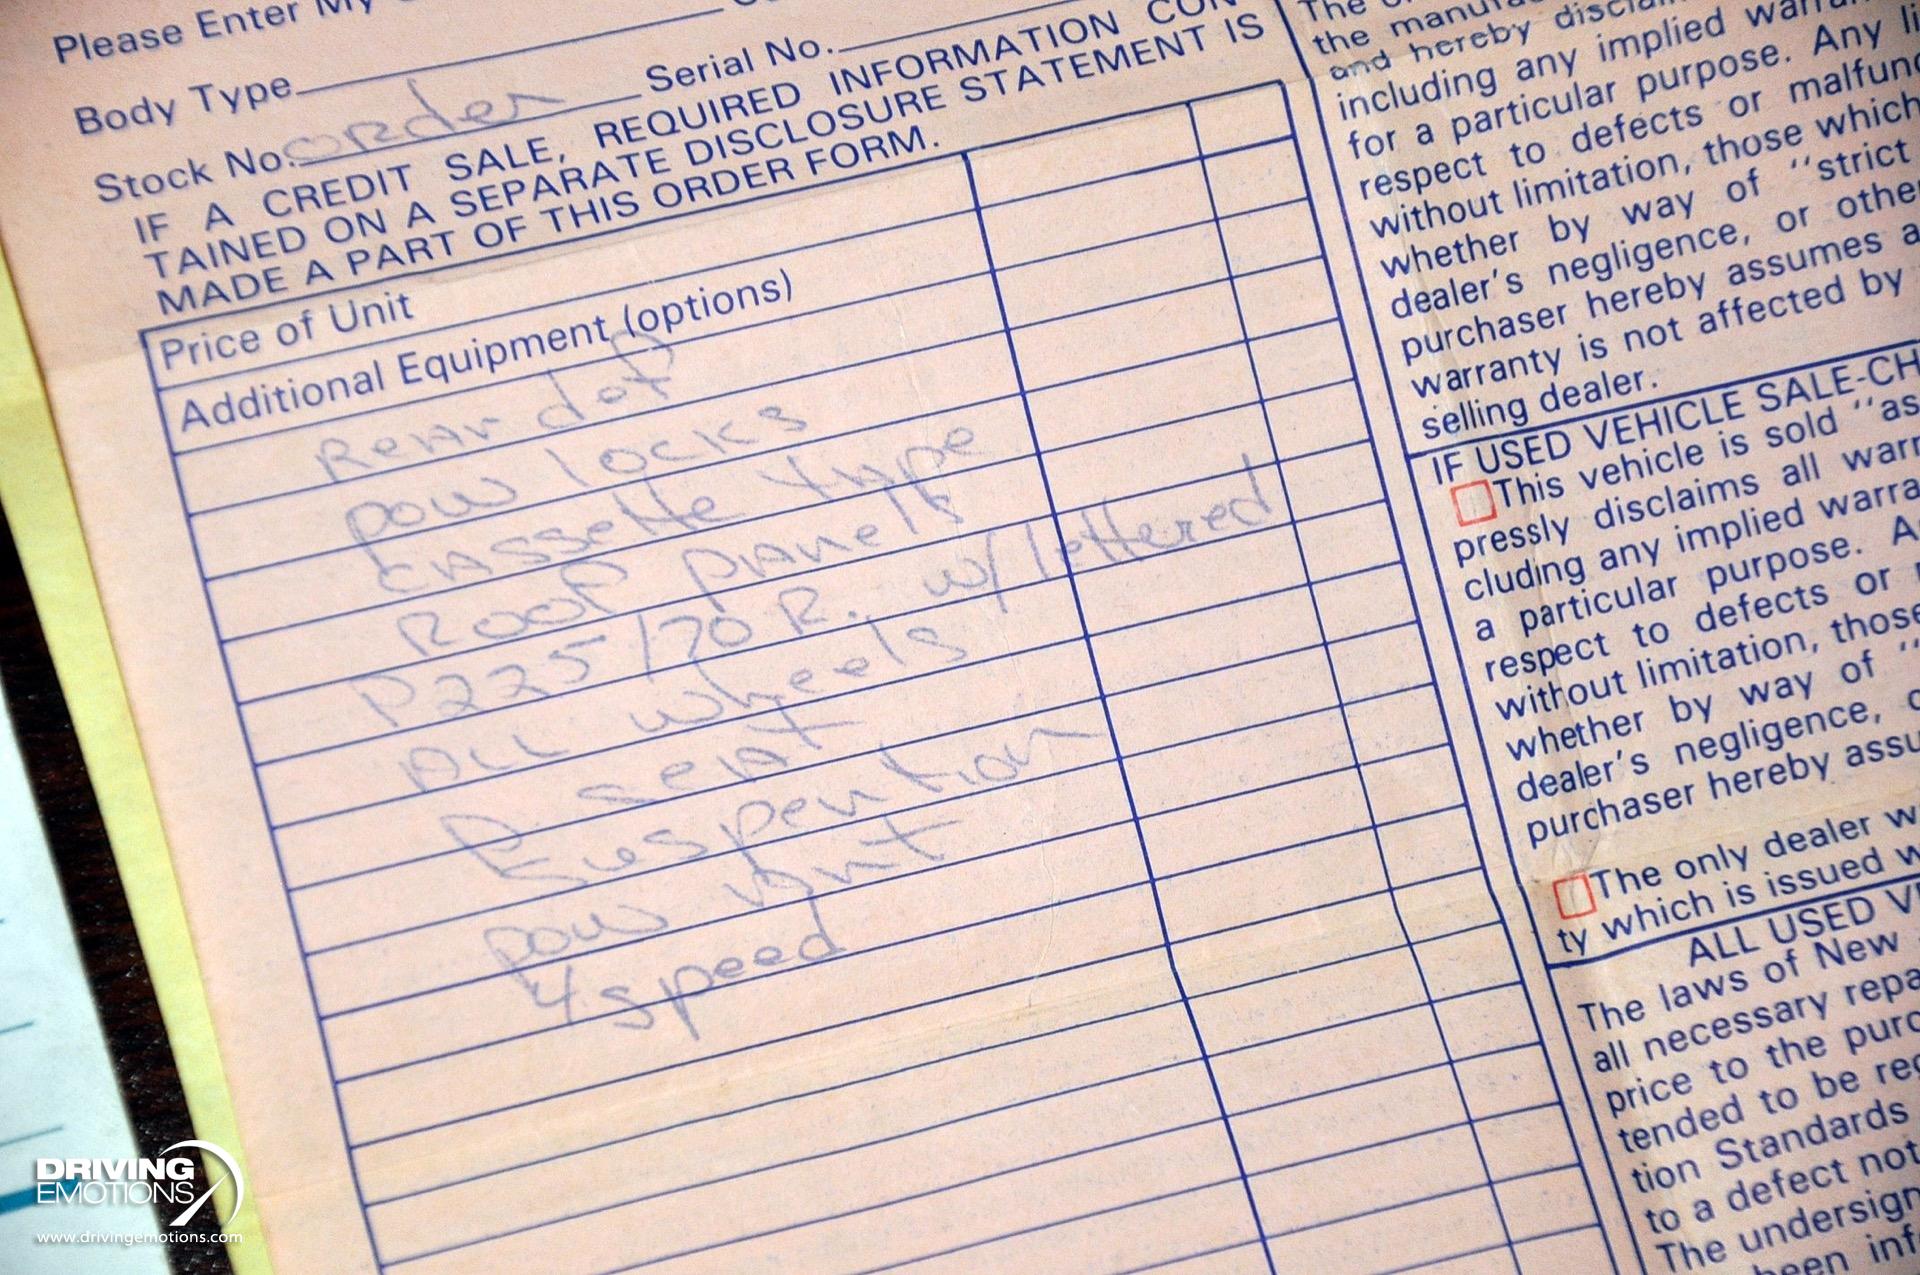 Please Enter My
Body Type
Serial No.
Stock No. order
IF A CREDIT SALE, REQUIRED INFORMATION CON-
TAINED ON A SEPARATE DISCLOSURE STATEMENT IS
MADE A PART OF THIS ORDER FORM.
Price of Unit
Additional Equipment (options)
Rear def
pow locks
cassette type
Roof panels
P225/70 R. w/lettered
ALL wheels
seat
Suspention
pow ant
4 speed
The
the manuf
and hereby disclai
including any implied warran
for a particular purpose. Any li
respect to defects or malfunc
without limitation, those which
whether by way of "strict
dealer's negligence, or othe
purchaser hereby assumes a
warranty is not affected by
selling dealer.
IF USED VEHICLE SALE-CH
This vehicle is sold "as
pressly disclaims all warr
cluding any implied warra
a particular purpose. A
respect to defects or
without limitation, those
whether by way of "
dealer's negligence, o
purchaser hereby assu
The only dealer w
ty which is issued w
ALL USED VE
The laws of New
all necessary repa
price to the purc
tended to be rec
tion Standards
to a defect not
The undersign
been inf
DRIVING
EMOTIONS
www.drivingemotions.com